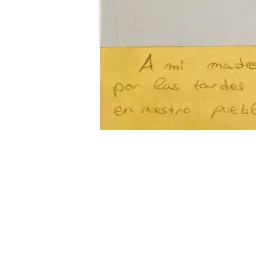 A mi madre
por las tardes
en nuestro